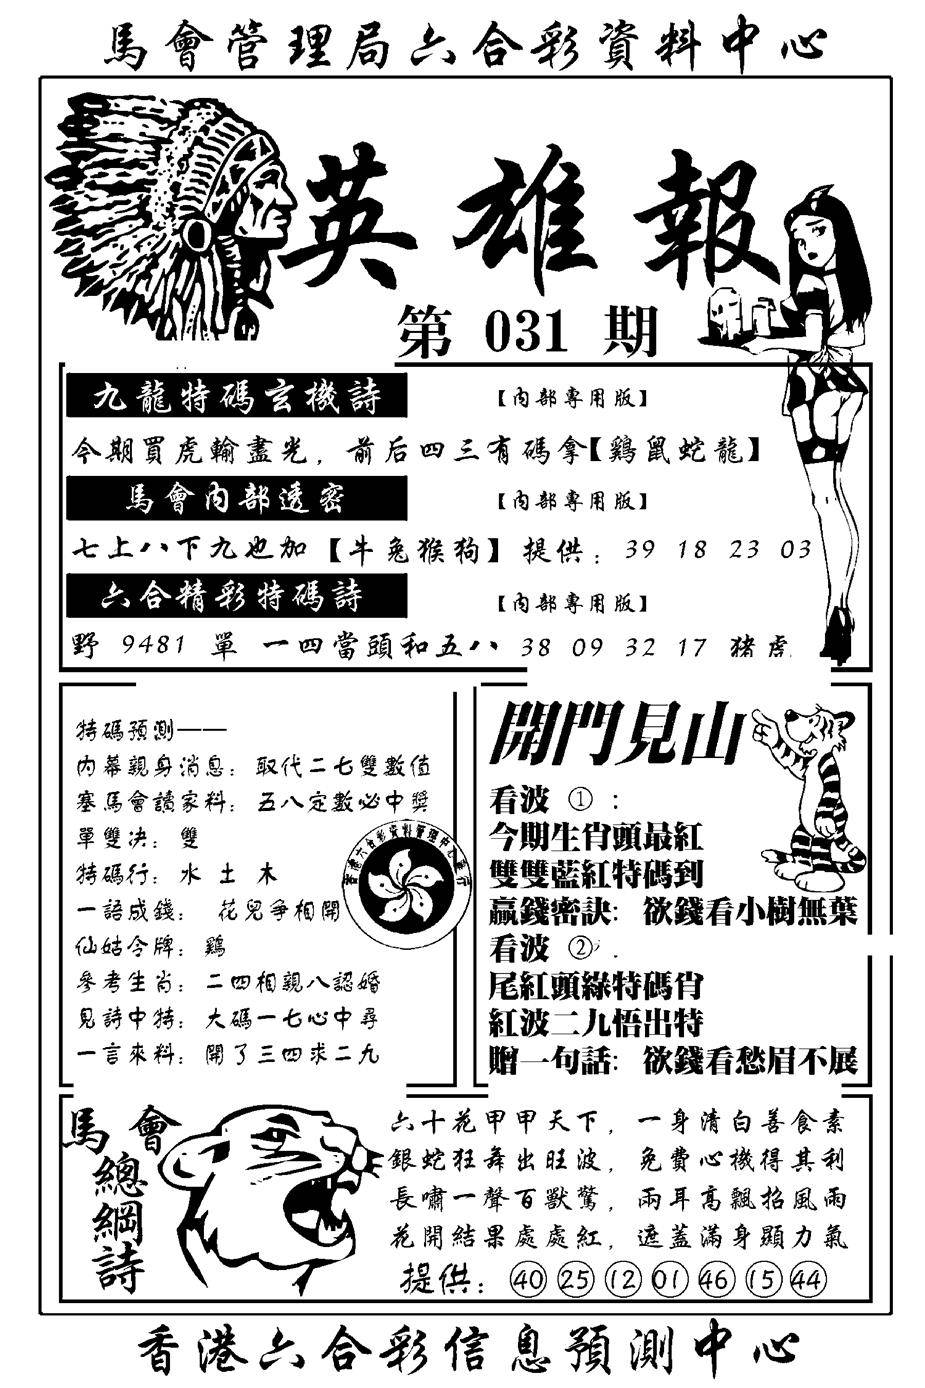 馬會管理局六合彩資料中心
英雄報
第 031 期
九龍特碼玄機詩
【內部專用版】
今期買虎輸盡光，前后四三有碼拿【鷄鼠蛇龍】
馬會內部透密
【內部專用版】
七上八下九也加【牛兔猴狗】提供：39 18 23 03
六合精彩特碼詩
【內部專用版】
野 9481 單 一四當頭和五八 38 09 32 17 猪虎
特碼預測——
內幕親身消息：取代二七雙數值
塞馬會讀家料：五八定數必中獎
單雙决：雙
特碼行：水 土 木
一語成錢： 花兒爭相開
仙姑令牌：鷄
參考生肖：二四相親八認婚
見詩中特：大碼一七心中尋
一言來料：開了三四求二九
開門見山
看波 ①：
今期生肖頭最紅
雙雙藍紅特碼到
贏錢密訣：欲錢看小樹無葉
看波②
尾紅頭綠特碼肖
紅波二九悟出特
贈一句話：欲錢看愁眉不展
馬會
總綱詩
六十花甲甲天下，一身清白善食素
銀蛇狂舞出旺波，免費心機得其利
長嘯一聲百獸驚，兩耳高飄招風雨
花開結果處處紅，遮蓋滿身顯力氣
提供：㊵ ㉕ ⑫ 01 ㊻ ⑮ ㊹
香港六合彩信息預測中心